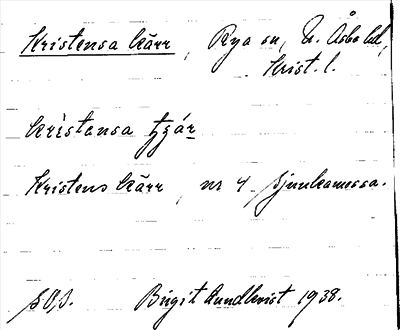 Kristensa Kärr, Rya sn, N. Åsbo hd,
Krist. l.
kristensa tjär
Kristens Kärr, nr 4 Sjunkamossa.
S.O.S. Birgit Lundkvist 1938.